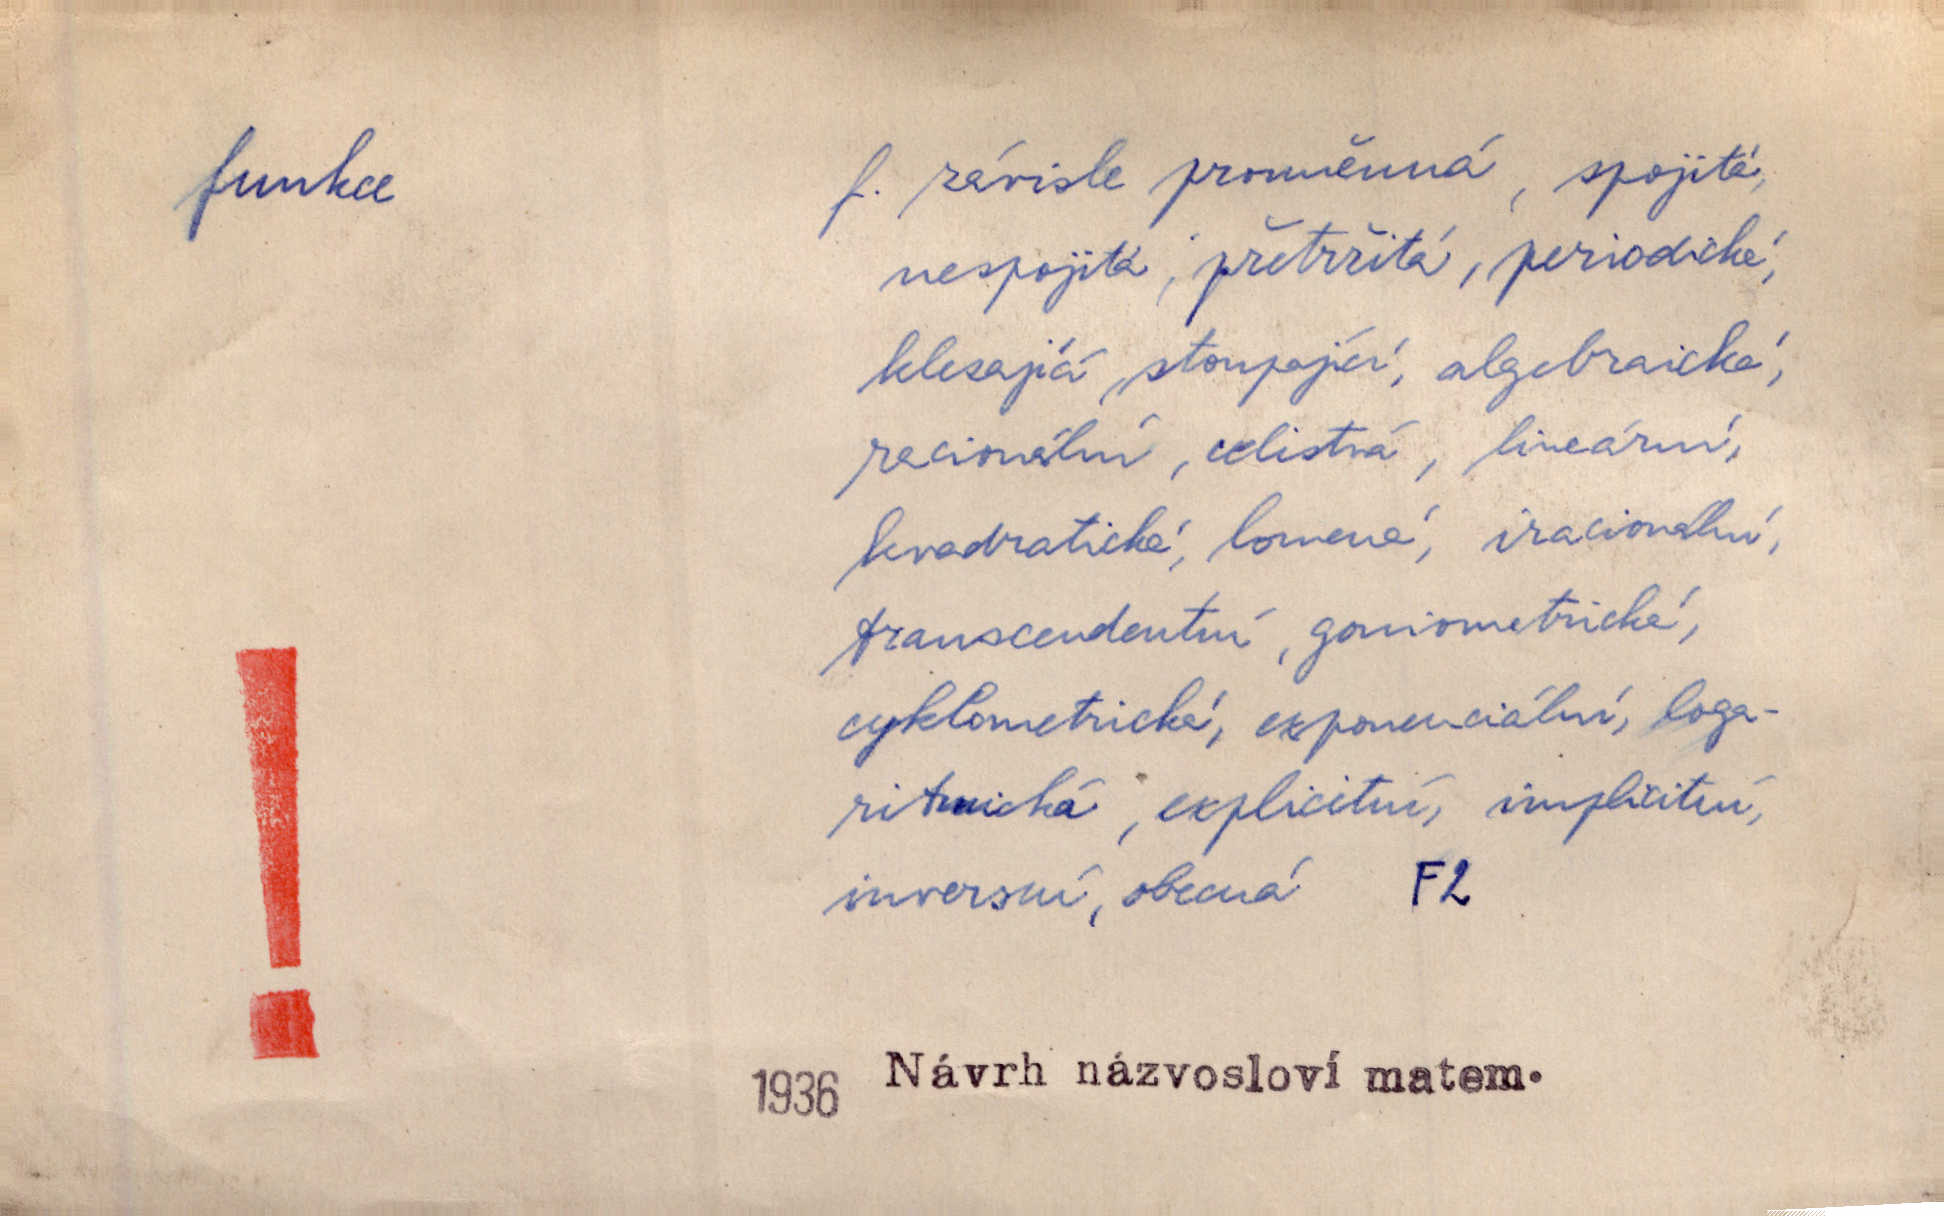 funkce
f. závisle proměnná, spojitá,
nespojitá, přetržitá, periodická,
klesající, stoupající, algebraická,
racionální, celistvá, lineární,
kvadratická, lomená, iracionální,
transcendentní, goniometrická,
cyklometrická, exponenciální, loga-
ritmická, explicitní, implicitní,
inversní, obecná F2
!
1936 Návrh názvosloví matem.